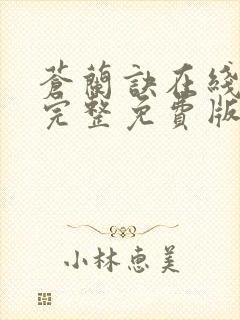 蒼蘭訣在綫
完整免費版
小林惠美